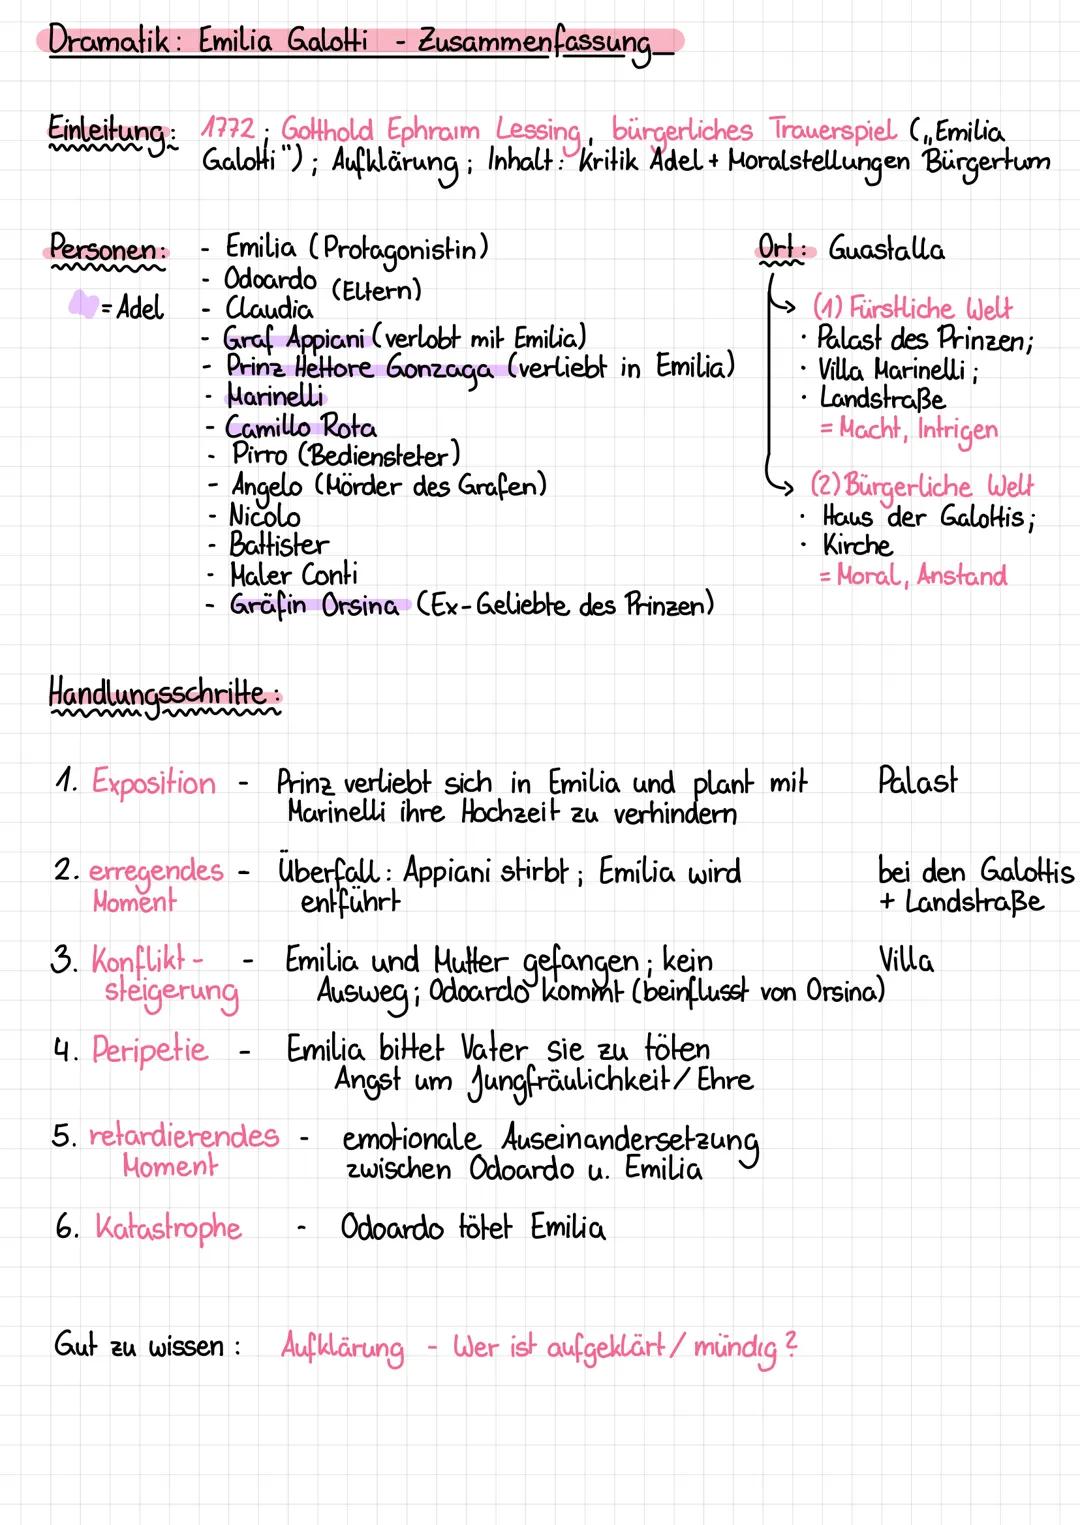 Dramatik: Emilia Galotti - Zusammenfassung
Einleitung: 1772; Gotthold Ephraim Lessing, bürgerliches Trauerspiel („Emilia
Galotti"); Aufklärung; Inhalt: Kritik Adel + Moralstellungen Bürgertum
Personen: - Emilia (Protagonistin)
- Odoardo (Eltern)
= Adel - Claudia
- Graf Appiani (verlobt mit Emilia)
- Prinz Hettore Gonzaga (verliebt in Emilia)
- Marinelli
- Camillo Rota
- Pirro (Bediensteter)
- Angelo (Mörder des Grafen)
- Nicolo
- Battister
- Maler Conti
- Gräfin Orsina (Ex-Geliebte des Prinzen)
Ort: Guastalla
(1) Fürstliche Welt
· Palast des Prinzen;
· Villa Marinelli;
· Landstraße
= Macht, Intrigen
(2) Bürgerliche Welt
· Haus der Galottis;
· Kirche
= Moral, Anstand
Handlungsschritte:
1. Exposition - Prinz verliebt sich in Emilia und plant mit Palast
Marinelli ihre Hochzeit zu verhindern
2. erregendes - Überfall: Appiani stirbt; Emilia wird bei den Galottis
Moment entführt + Landstraße
3. Konflikt- - Emilia und Mutter gefangen; kein Villa
steigerung Ausweg; Odoardo kommt (beinflusst von Orsina)
4. Peripetie - Emilia bittet Vater sie zu töten
Angst um Jungfräulichkeit/Ehre
5. retardierendes - emotionale Auseinandersetzung
Moment zwischen Odoardo u. Emilia
6. Katastrophe - Odoardo tötet Emilia
Gut zu wissen: Aufklärung - Wer ist aufgeklärt/mündig?